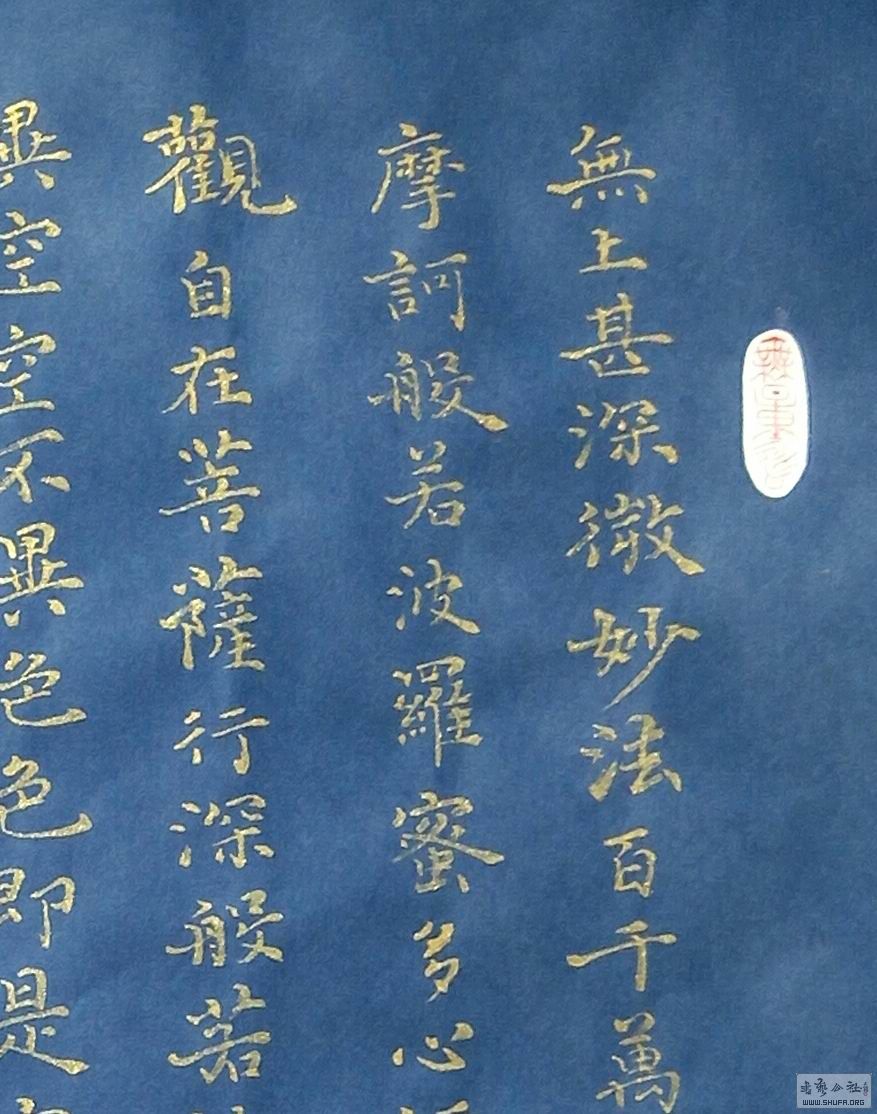 無上甚深微妙法百千萬
摩訶般若波羅蜜多心
觀自在菩薩行深般若
異空空不異色色即是
WWW.SHUFA.ORG